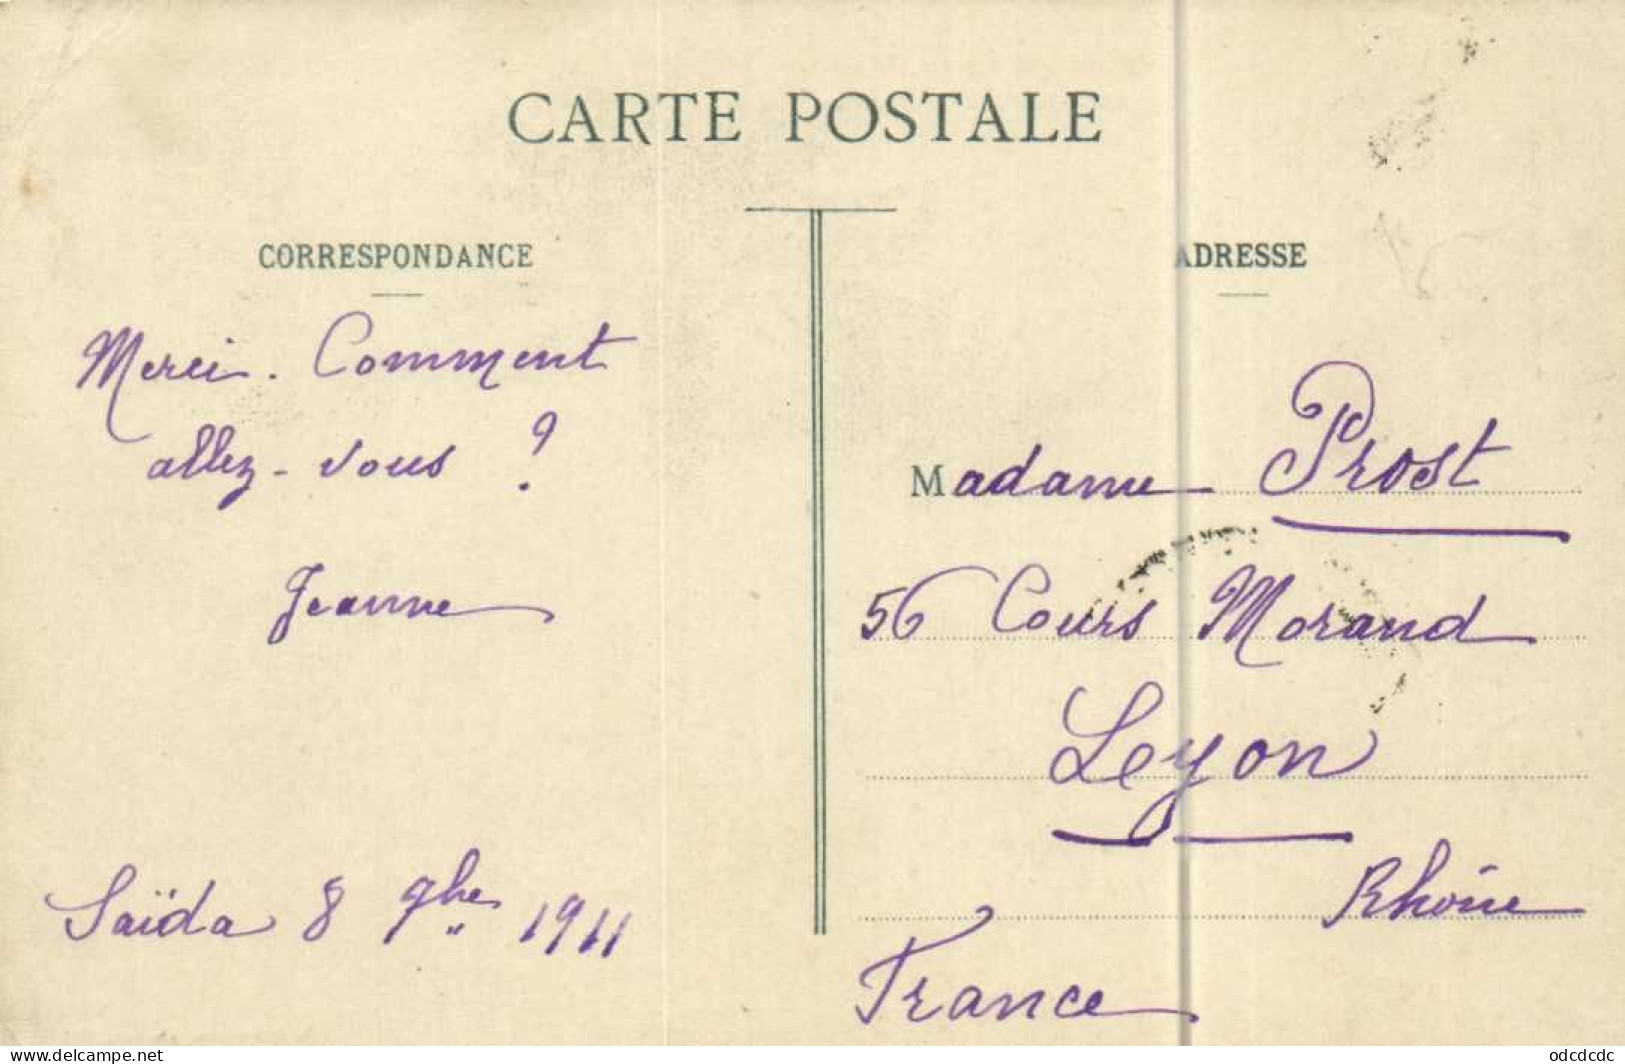 CARTE POSTALE
CORRESPONDANCE
Merci. Comment
allez-vous ?
Jeanne
Saïda 8 9bre 1911
ADRESSE
Madame Prost
56 Cours Morand
Leyon
Rhône
France
https://www.delcampe.net
odcdcdc